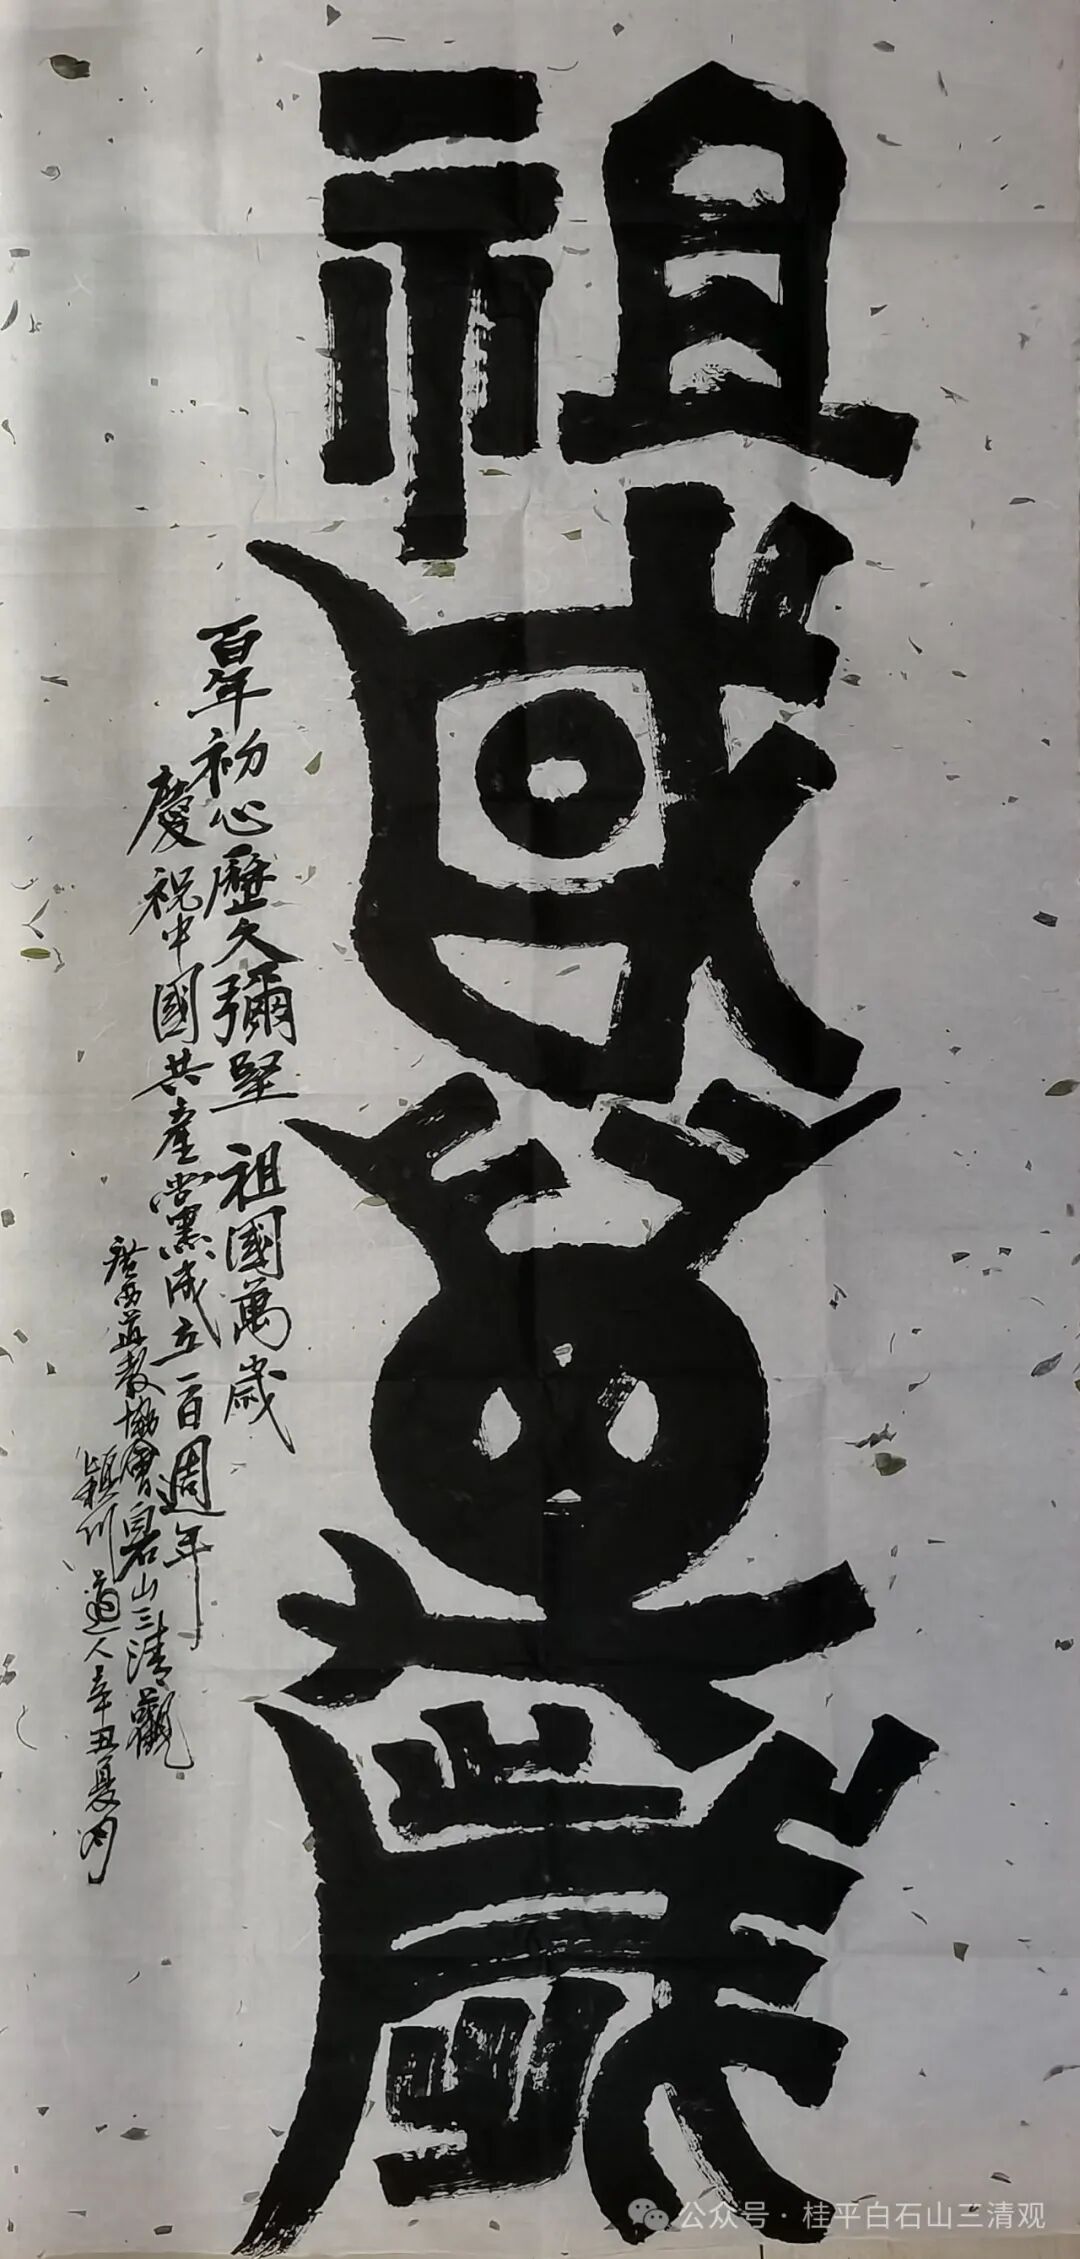 祖國萬歲
百年初心歷久彌堅 祖國萬歲
慶祝中國共產黨成立一百週年
廣西道教協會白石山三清觀
穎川道人辛丑夏月
公众号·桂平白石山三清观